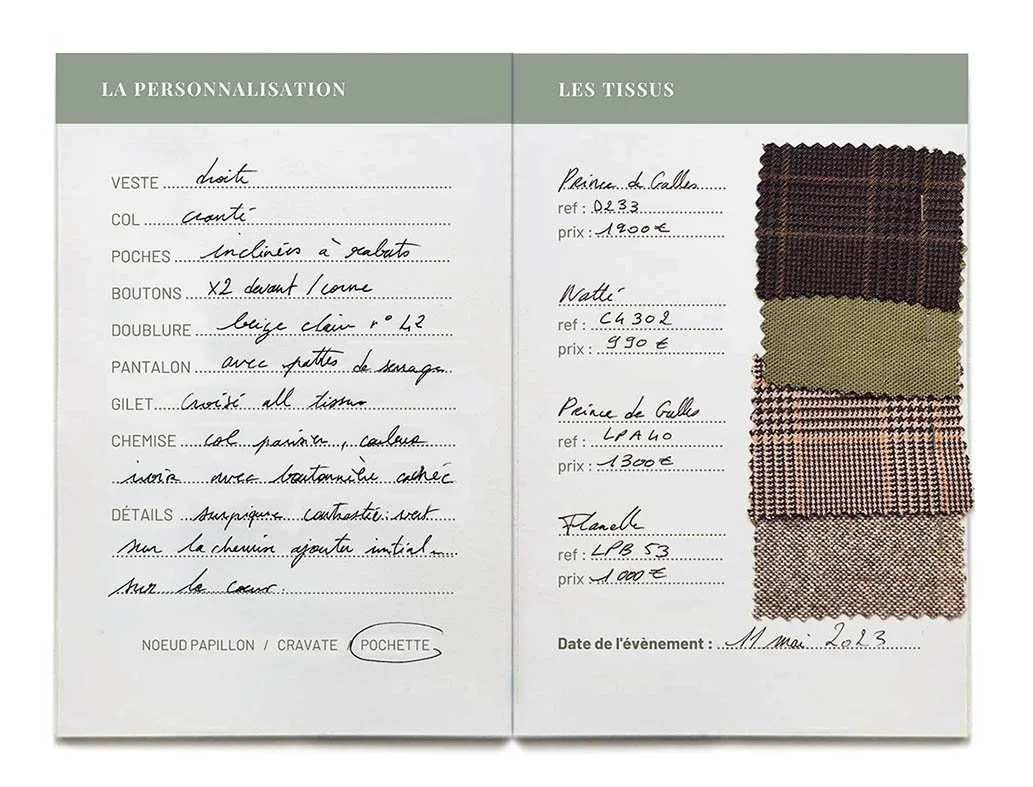 LA PERSONNALISATION
VESTE droite
COL cranté
POCHES inclinées à rabats
BOUTONS X2 devant / corne
DOUBLURE beige clair n° 42
PANTALON avec pattes de serrage
GILET Croisé all tissus
CHEMISE col parisien, couleur
ivoire avec boutonnière cachée
DÉTAILS surpiqure contrastée: vert
sur la chemise ajouter initiales
sur le coeur.
NOEUD PAPILLON / CRAVATE / POCHETTE
LES TISSUS
Prince de Galles
ref : D233
prix : 1900€
Natté
ref : C4302
prix : 990 €
Prince de Galles
ref : LPA40
prix : 1300€
Flanelle
ref : LPB 53
prix 1000€
Date de l'évènement : 11 mai 2023